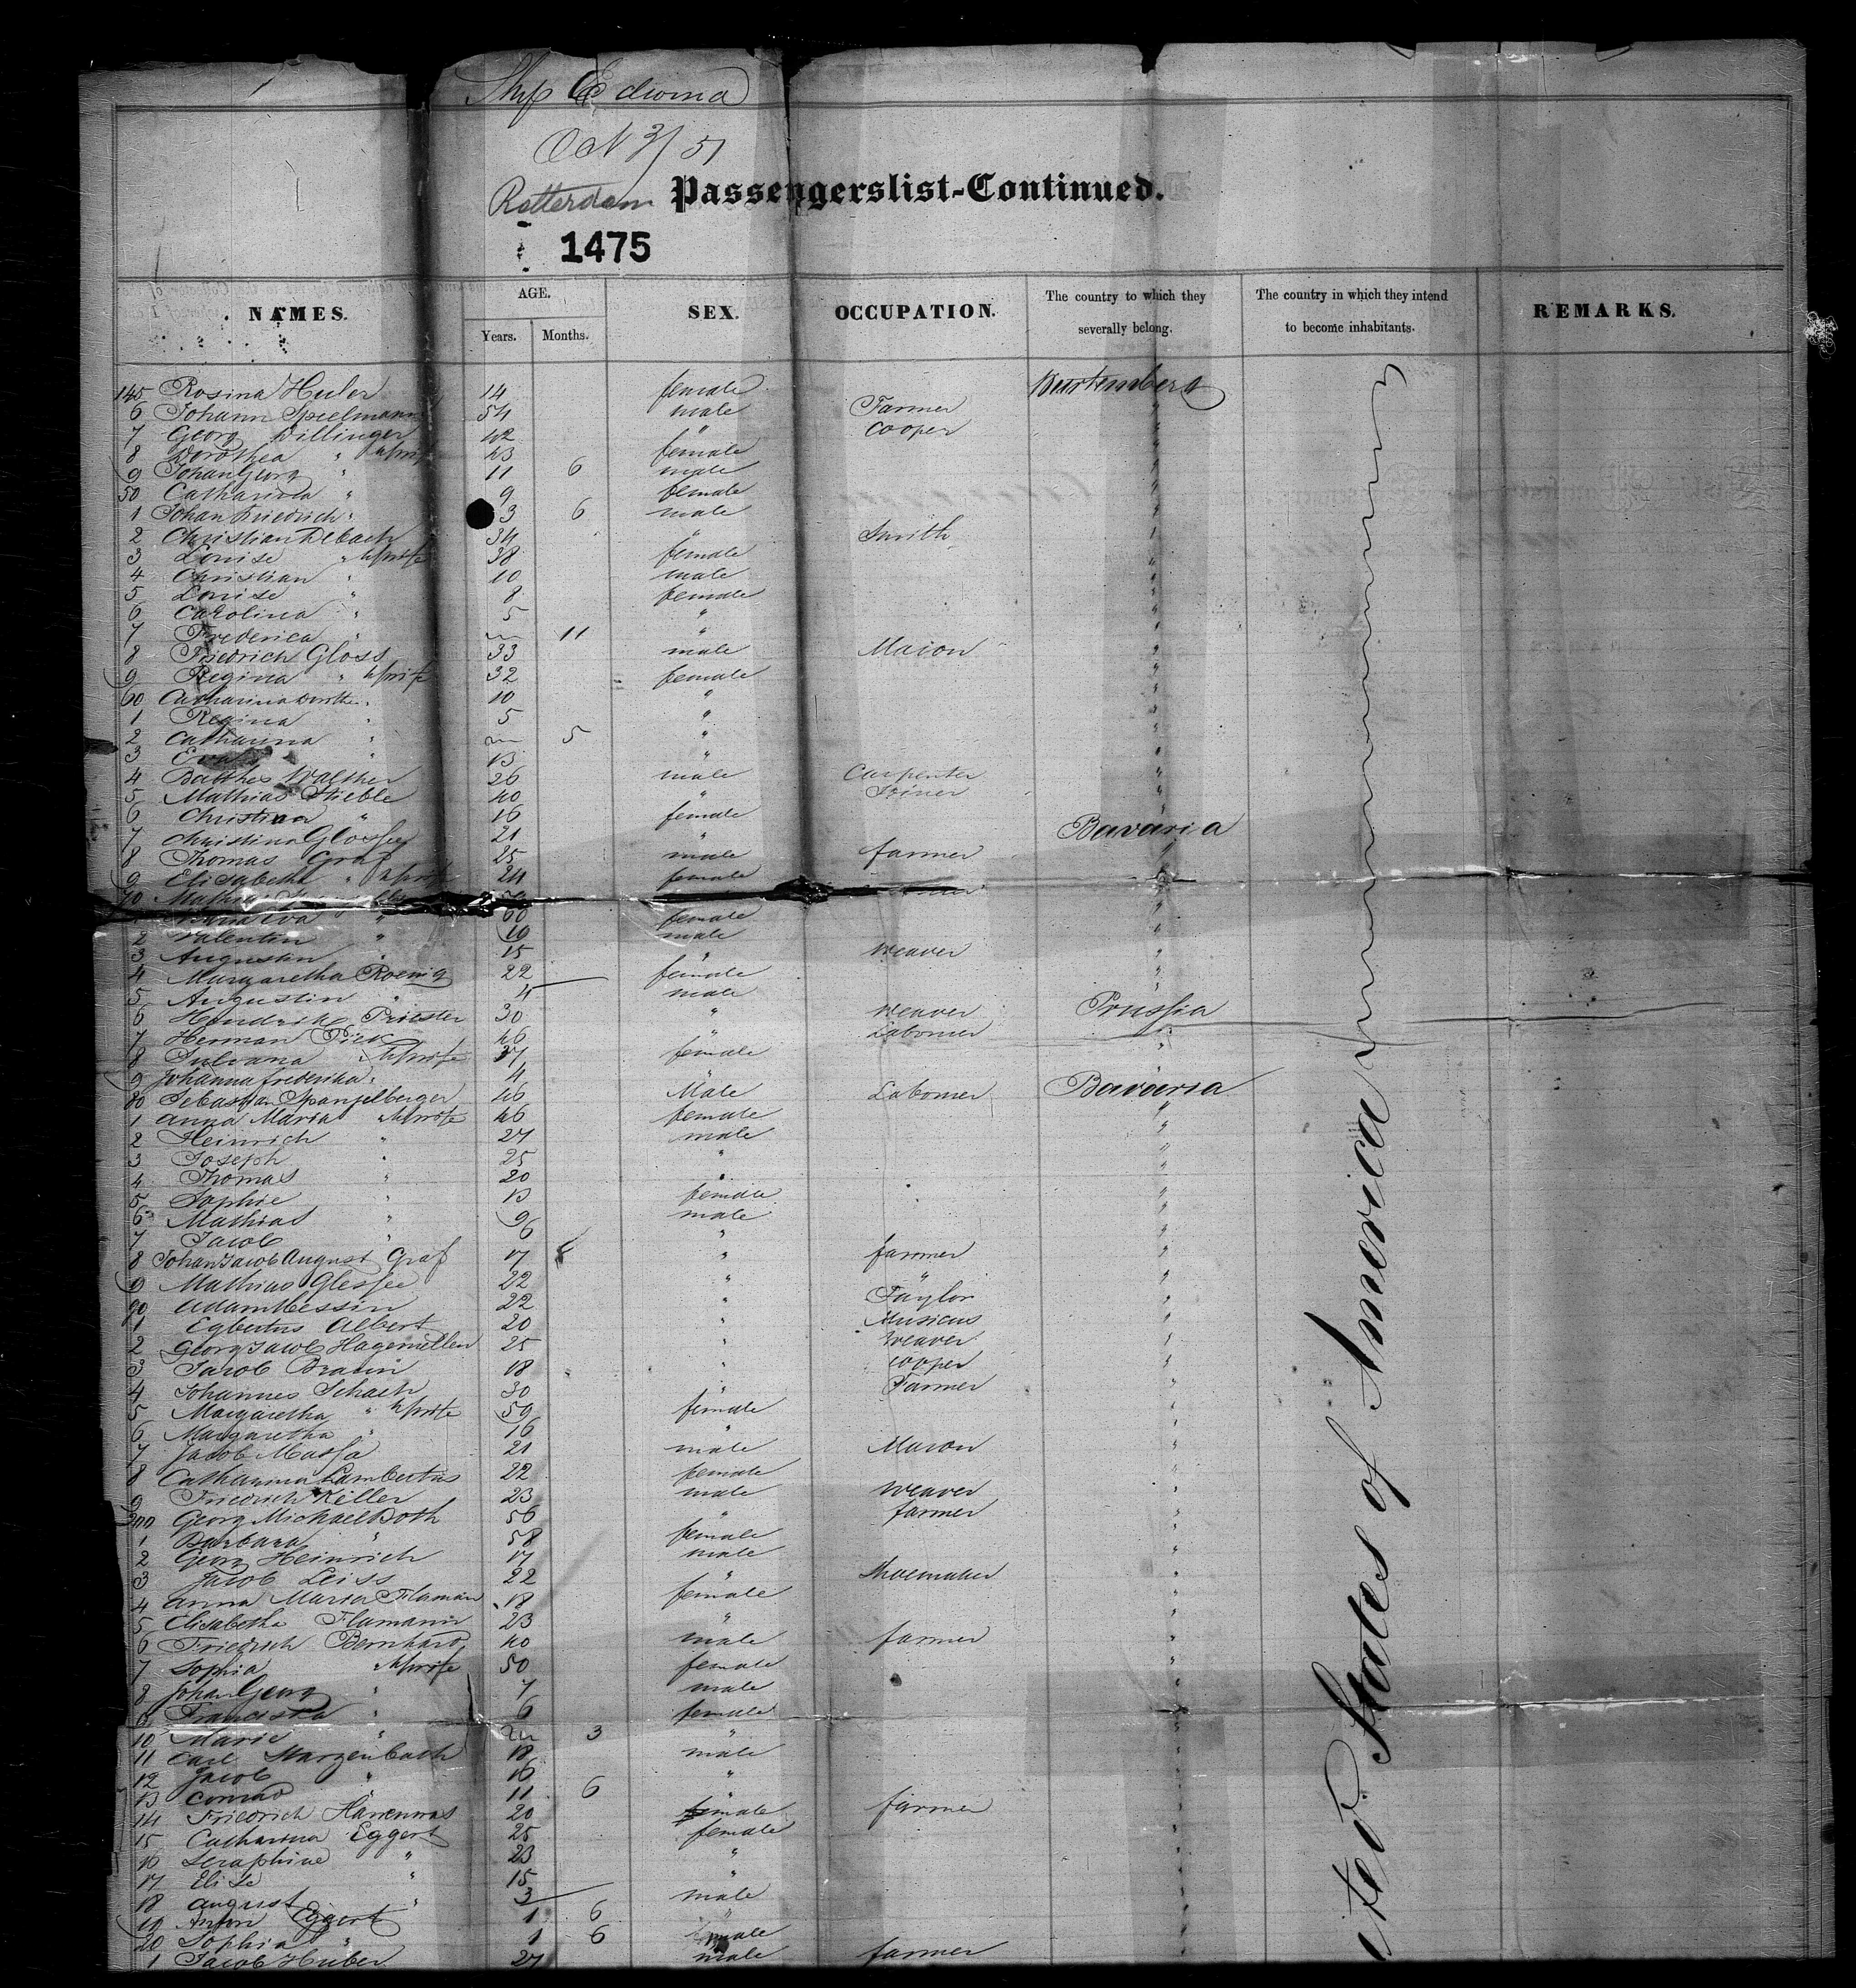 Ship Edwina
Oct 3/51
Rotterdam Passengerslist-Continued.
1475
NAMES. AGE. SEX. OCCUPATION. The country to which they severally belong. The country in which they intend to become inhabitants. REMARKS.
Years. Months.
145 Rosina Huber 14 female Wurtemberg
6 Johann Spielmann 54 male Farmer "
7 Georg Dillinger 42 " Cooper "
8 Dorothea " wife 43 female "
9 Johan Georg " 11 6 male "
50 Catharina " 9 female "
1 Johan Friedrich " 3 6 male "
2 Christian Debach 34 " Smith "
3 Louise " wife 38 female "
4 Christian " 10 male "
5 Louise " 8 female "
6 Carolina " 5 " "
7 Frederica " 11 " "
8 Friedrich Gloss 33 male Mason "
9 Regina " wife 32 female "
60 Catharina Doroth " 10 " "
1 Regina " 5 " "
2 Catharina " 5 " "
3 Eva " 13 " "
4 Balthes Walther 26 male Carpenter "
5 Mathias Stieble 40 " Joiner "
6 Christina " 16 female "
7 Christina Glosser 21 " Bavaria
8 Thomas Graf 25 male farmer "
9 Elisabetha " wife 24 female "
70 Mathias
Eva " 60 female "
2 Valentin " 19 male "
3 Augustin " 15 " Weaver "
4 Margaretha Roenig 22 female "
5 Augustin " 4 male "
6 Hendrik Priester 30 " Weaver Prussia
7 Herman Pick 46 " Labourer "
8 Juliana " wife 37 female "
9 Johanna frederika " 4 "
80 Sebastian Spanzelberger 46 Male Labourer Bavaria
1 Anna Maria " wife 46 female "
2 Heinrich " 27 male "
3 Joseph " 25 " "
4 Thomas " 20 " "
5 Sophie " 13 female "
6 Mathias " 9 male "
7 Jacob " 6 " "
8 Johan Jacob August Graf 17 " farmer "
9 Mathias Glesser 22 " " "
90 Adam Messin 22 " Taylor "
1 Egbertus Albert 20 " Musicus "
2 Georg Jacob Hagemiller 25 " Weaver "
3 Jacob Braun 18 " Cooper "
4 Johannes Schaeh 30 " Farmer "
5 Margaretha " wife 59 female "
6 Margaretha " 16 " "
7 Jacob Massa 21 male Mason "
8 Catharina Lambertus 22 female "
9 Friedrich Keller 23 male Weaver "
200 Georg Michael Both 56 " farmer "
1 Barbara " 58 female "
2 Georg Heinrich 17 male "
3 Jacob Leiss 22 " Shoemaker "
4 Anna Maria Flaman 18 female "
5 Elisabetha Flamann 23 " "
6 Friedrich Bernhard 40 male farmer "
7 Sophia " wife 50 female "
8 Johan Georg " 7 male "
9 Franciska " 6 female "
10 Marie " 3 " "
11 Carl Marzenbach 18 male "
12 Jacob " 16 " "
13 Conrad " 11 6 " "
14 Friedrich 20 male farmer "
15 Catharina Eggert 25 female "
16 Seraphine " 23 " "
17 Elise " 15 " "
18 August " 3 male "
19 Anton Eggert 1 6 " "
20 Sophia " 1 6 female "
1 Jacob Huber 27 male farmer "
States of America